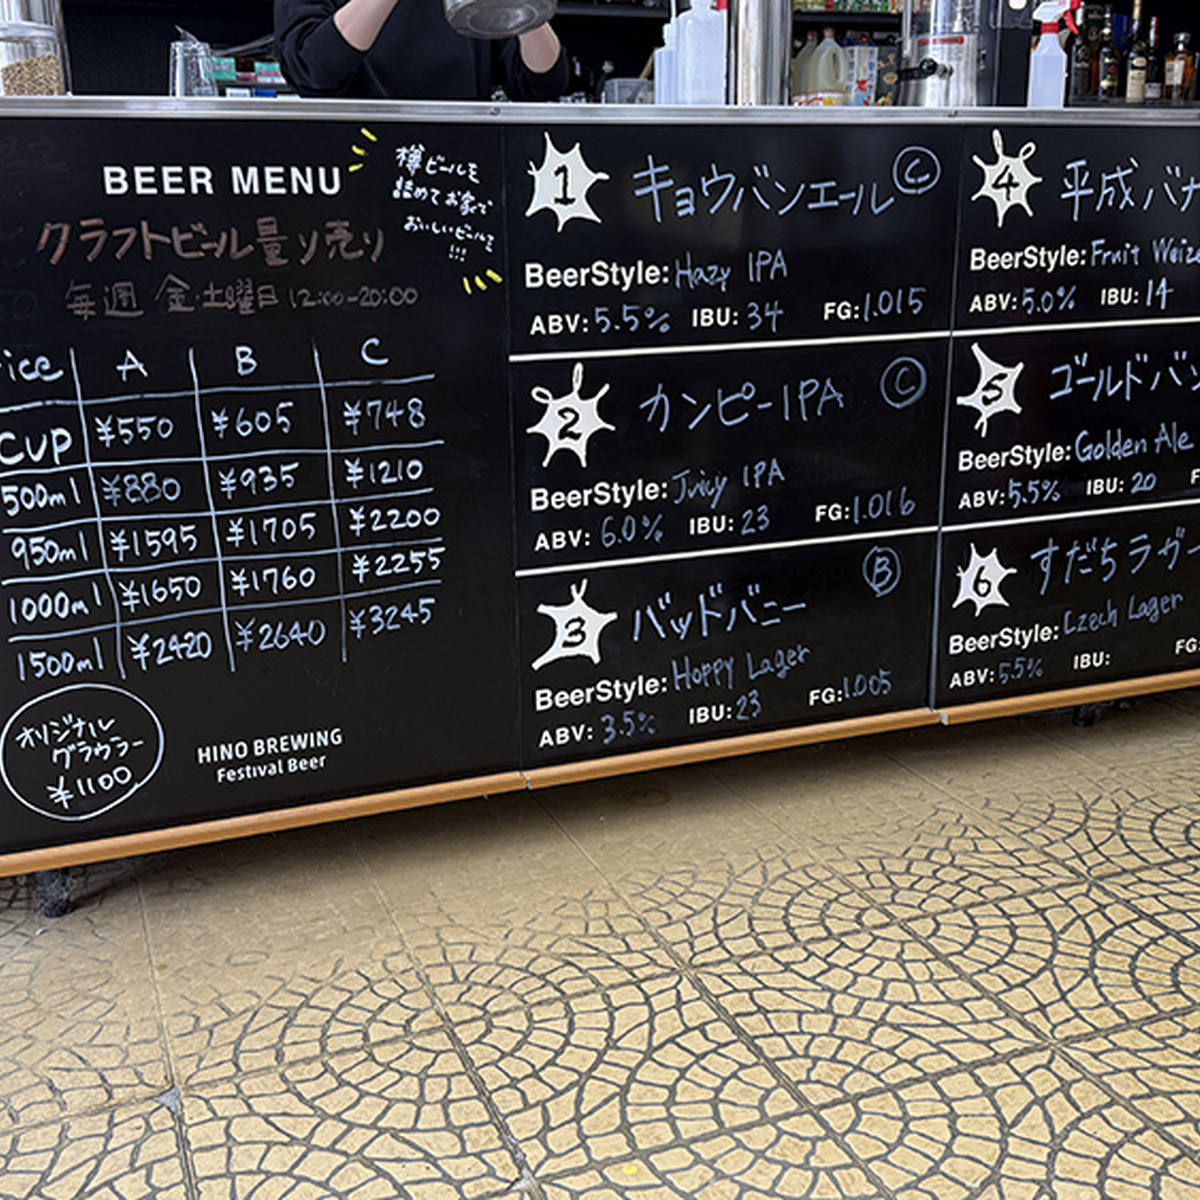 BEER MENU
樽ビールを
詰めてお家で
おいしいビールを
!!!
クラフトビール量り売り
毎週 金・土曜日 12:00-20:00
ice A B C
CUP ¥550 ¥605 ¥748
500ml ¥880 ¥935 ¥1210
950ml ¥1595 ¥1705 ¥2200
1000ml ¥1650 ¥1760 ¥2255
1500ml ¥2420 ¥2640 ¥3245
オリジナル
グラウラー
¥1100
HINO BREWING
Festival Beer
1 キョウバンエール C
BeerStyle: Hazy IPA
ABV: 5.5% IBU: 34 FG: 1.015
2 カンピーIPA C
BeerStyle: Juicy IPA
ABV: 6.0% IBU: 23 FG: 1.016
3 バッドバニー B
BeerStyle: Hoppy Lager
ABV: 3.5% IBU: 23 FG: 1.005
4 平成バナ
BeerStyle: Fruit Weize
ABV: 5.0% IBU: 14
5 ゴールドバ
BeerStyle: Golden Ale
ABV: 5.5% IBU: 20 F
6 すだちラガー
BeerStyle: Czech Lager
ABV: 5.5% IBU: FG: